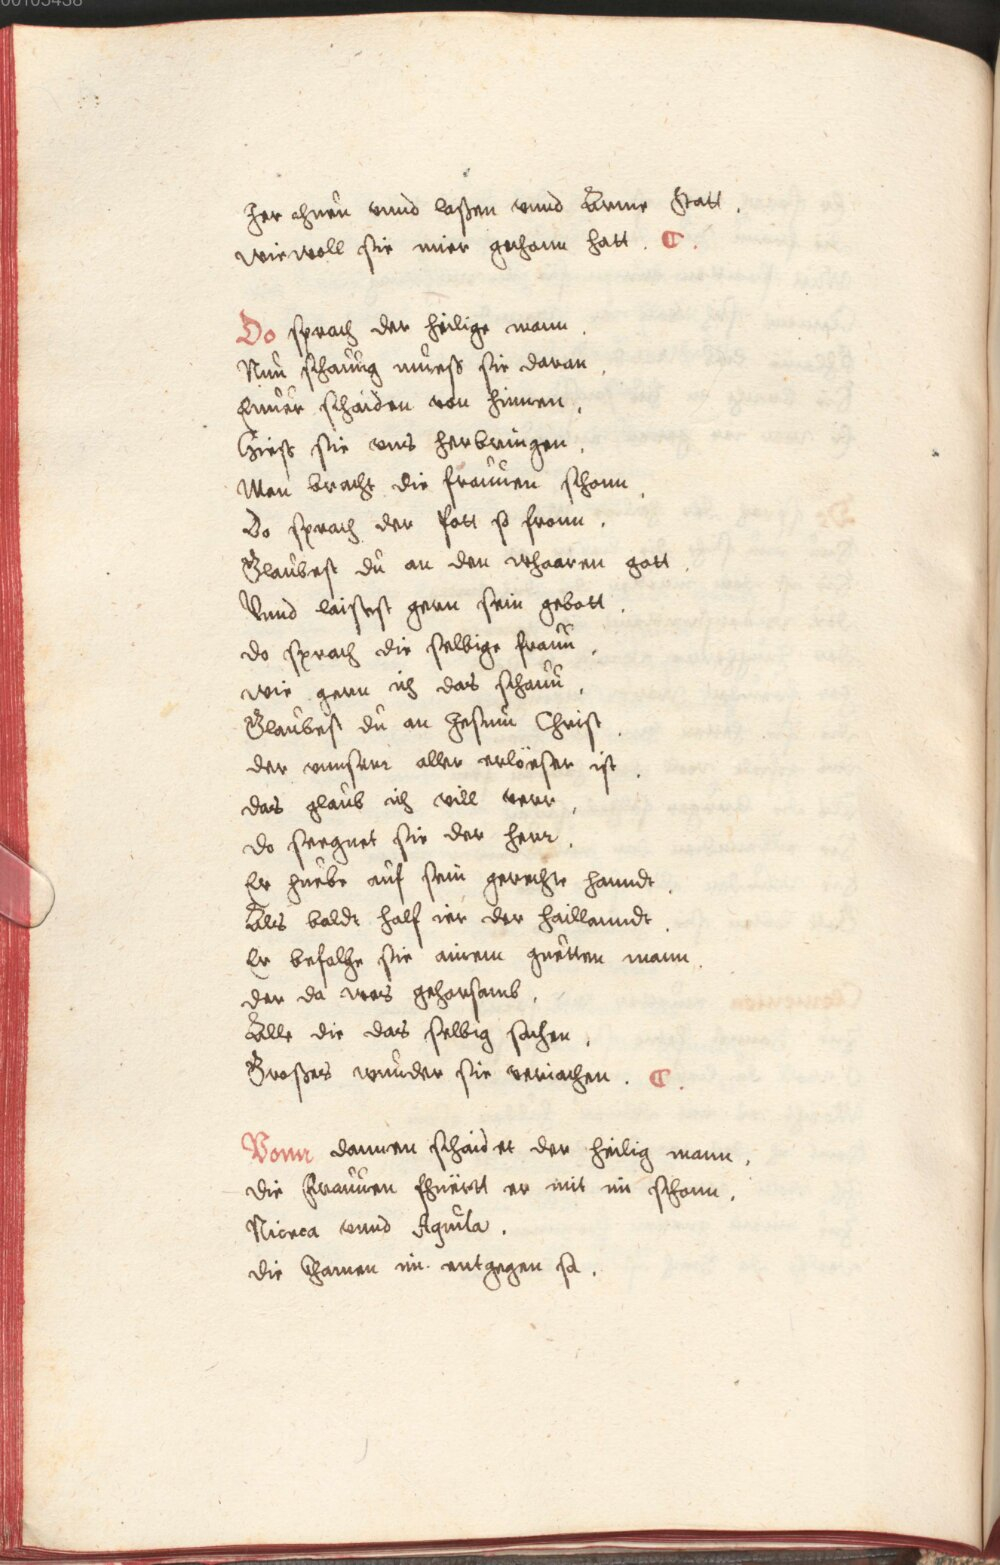 00105438
Irer ehren vnnd leßen vnnd Arme Statt.
wiewoll sie mier gethonn hatt. C.
Do sprach der heilige mann.
Nun schauug mueß sie daran,
Ennder schaiden von hinnen,
Hieß sie vns herbringen,
Man bracht die frauuen schonn,
Do sprach der Pott so fronn,
Glaubest du an den whaaren gott,
Vnnd laistest gern sein gebott,
do sprach die selbige frauu,
wie gern ich das schauu,
Glaubest du an Jesum Christ,
der vnnserr aller erlöeser ist,
das glaub ich vill verr,
do seegnet sie der herr,
Er huebe auf sein gerechte hanndt,
Als baldt half ier der haillanndt,
Er befalhe sie ainem guetten mann,
der da was gehorsamb,
Alle die das selbig sachen,
Großes wunder sie veriachen. C.
Vonn dannen schaidet der heilig mann,
die Frauuen fhuërtt er mit im schonn,
Niceta vnnd Aquila,
die Chamen im entgegen sa,